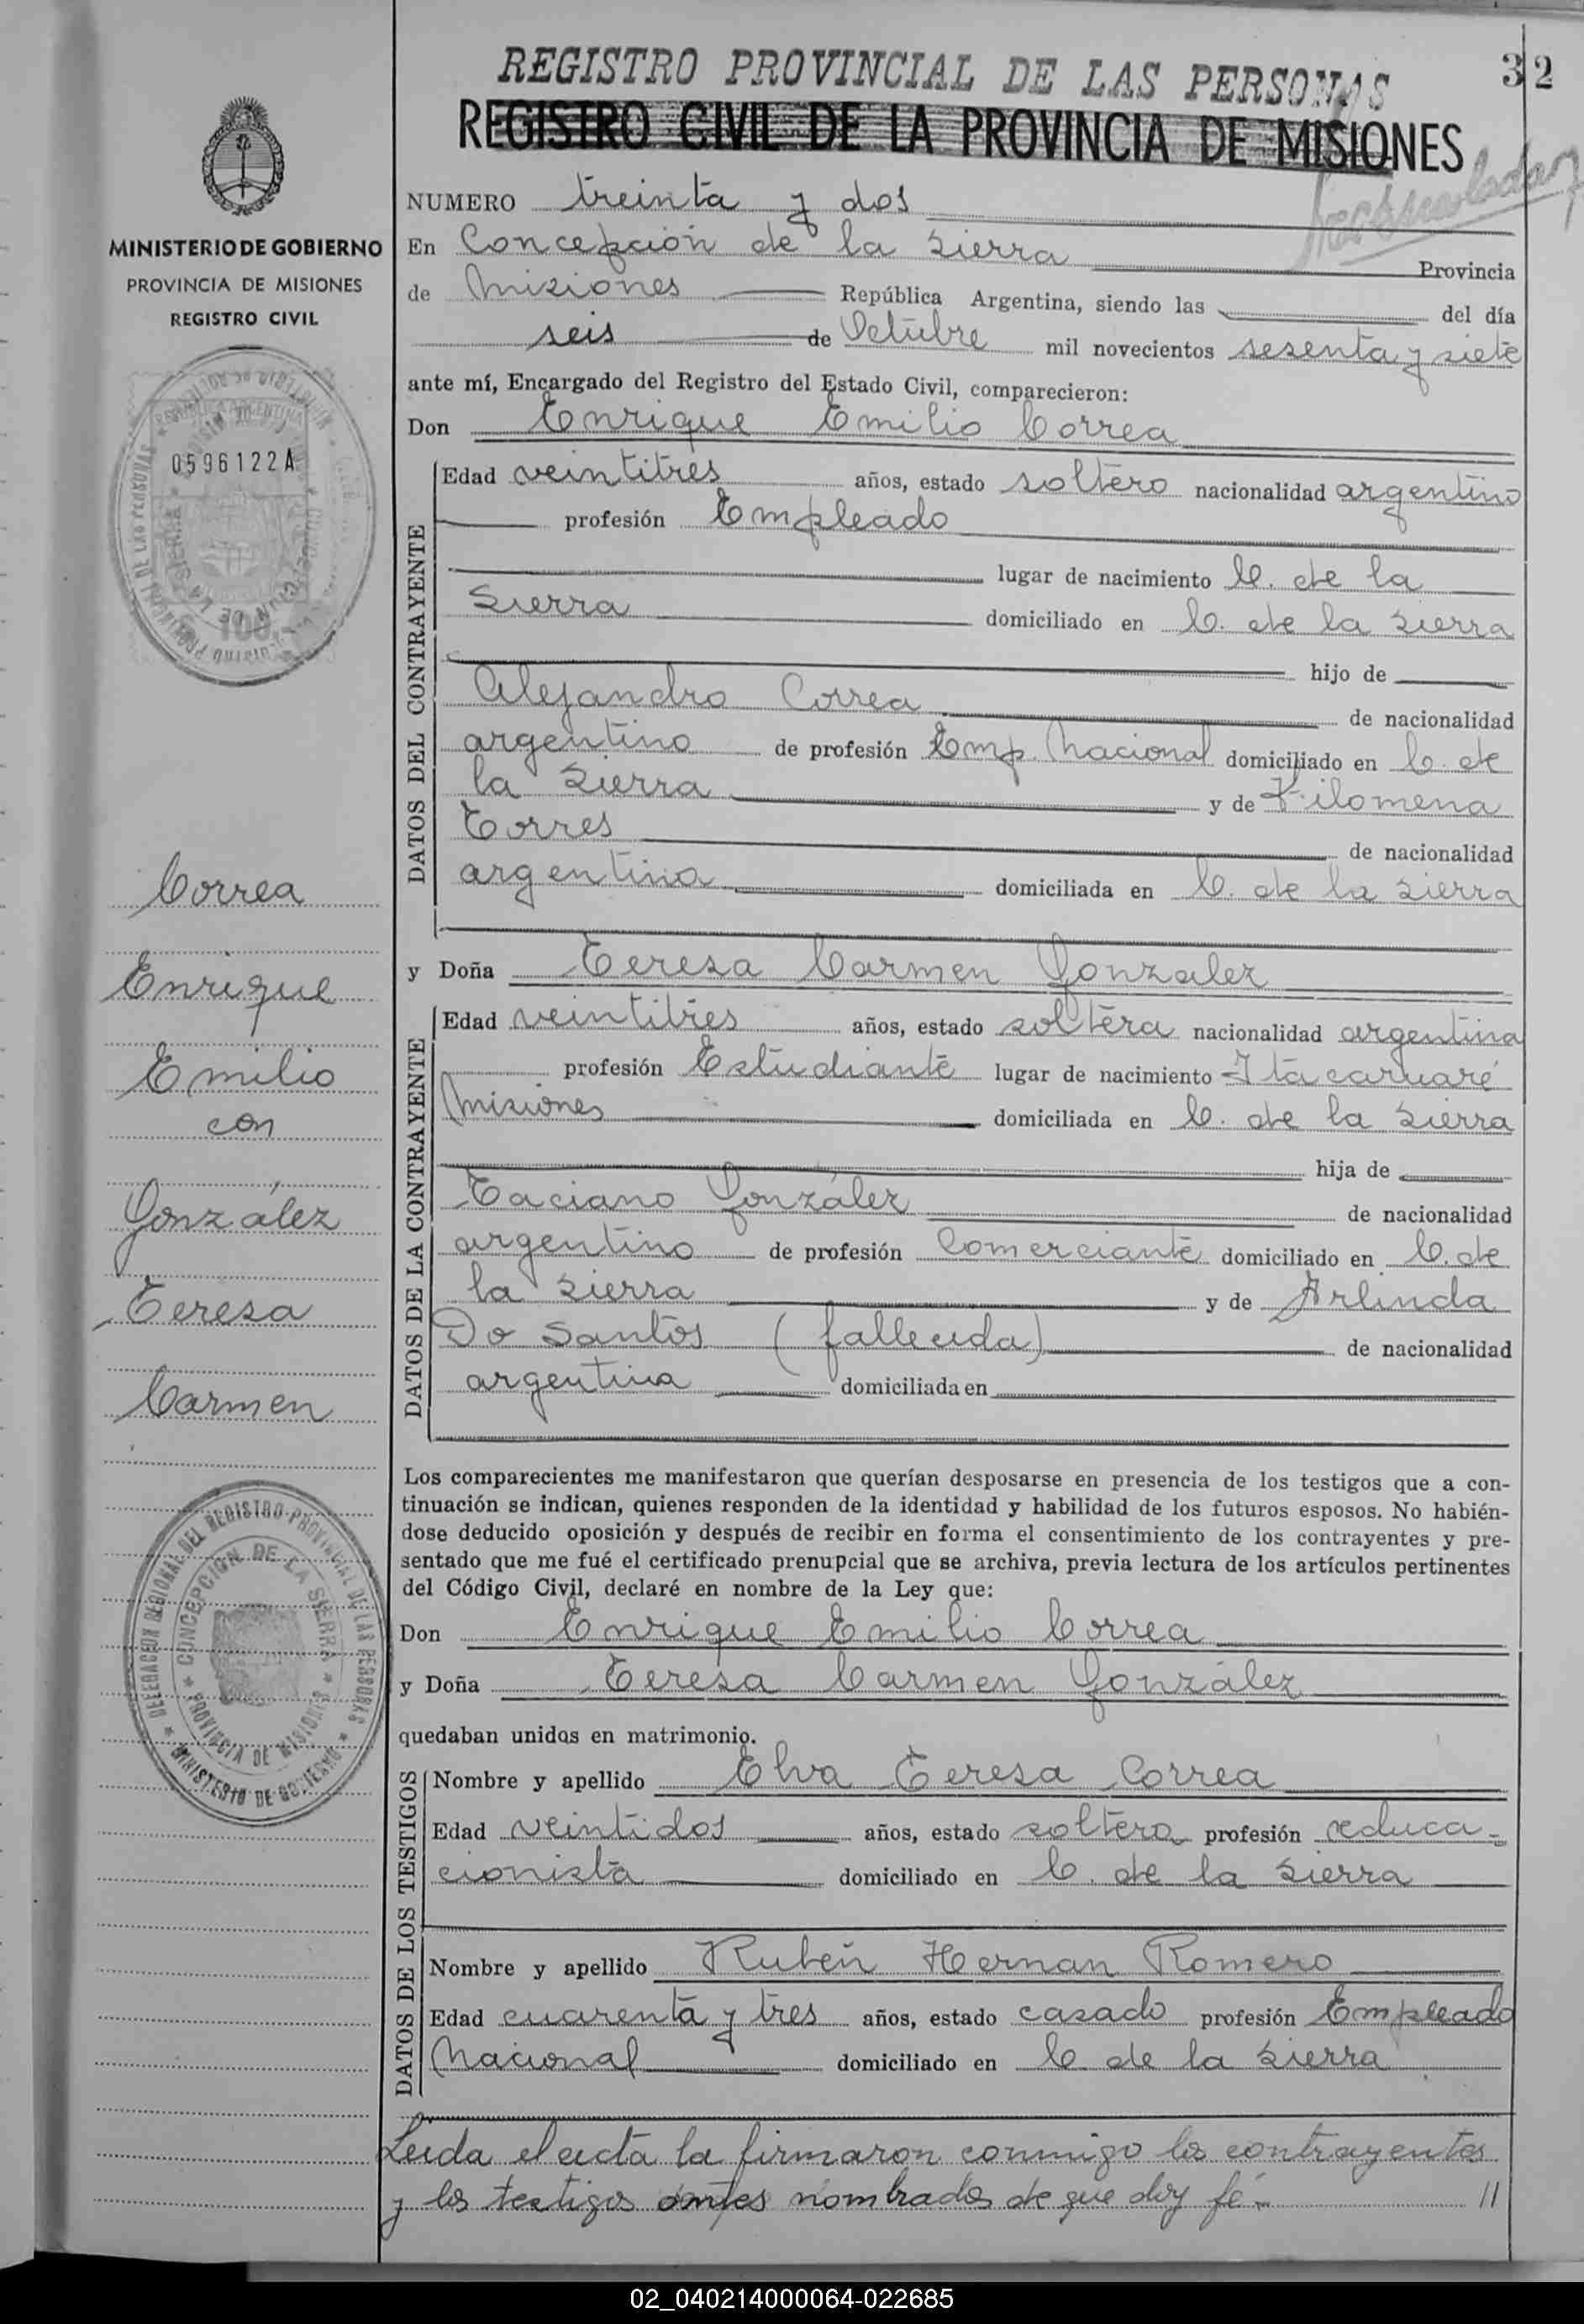 REGISTRO PROVINCIAL DE LAS PERSONAS
32
REGISTRO CIVIL DE LA PROVINCIA DE MISIONES
MINISTERIO DE GOBIERNO
PROVINCIA DE MISIONES
REGISTRO CIVIL
0596122A
NUMERO treinta y dos
En Concepción de la Sierra Provincia
de Misiones República Argentina, siendo las del día
seis de Octubre mil novecientos sesenta y siete
ante mí, Encargado del Registro del Estado Civil, comparecieron:
Don Enrique Emilio Correa
DATOS DEL CONTRAYENTE
Edad veintitres años, estado soltero nacionalidad argentino
profesión Empleado
lugar de nacimiento C. de la
Sierra domiciliado en C. de la Sierra
hijo de
Alejandro Correa de nacionalidad
argentino de profesión Emp. Nacional domiciliado en C. de
la Sierra y de Filomena
Torres de nacionalidad
argentina domiciliada en C. de la Sierra
y Doña Teresa Carmen Gonzalez
DATOS DE LA CONTRAYENTE
Edad veintitres años, estado soltera nacionalidad argentina
profesión Estudiante lugar de nacimiento Itacaruaré
Misiones domiciliada en C. de la Sierra
hija de
Taciano González de nacionalidad
argentino de profesión Comerciante domiciliado en C. de
la Sierra y de Arlinda
Do Santos (fallecida) de nacionalidad
argentina domiciliada en
Los comparecientes me manifestaron que querían desposarse en presencia de los testigos que a con-
tinuación se indican, quienes responden de la identidad y habilidad de los futuros esposos. No habién-
dose deducido oposición y después de recibir en forma el consentimiento de los contrayentes y pre-
sentado que me fué el certificado prenupcial que se archiva, previa lectura de los artículos pertinentes
del Código Civil, declaré en nombre de la Ley que:
Don Enrique Emilio Correa
y Doña Teresa Carmen González
quedaban unidos en matrimonio.
DATOS DE LOS TESTIGOS
Nombre y apellido Elva Teresa Correa
Edad veintidos años, estado soltera profesión educa-
cionista domiciliado en C. de la Sierra
Nombre y apellido Rubén Hernan Romero
Edad cuarenta y tres años, estado casado profesión Empleado
Nacional domiciliado en C de la Sierra
Leida el acta la firmaron conmigo los contrayentes
y los testigos antes nombrados de que doy fé.- //
Correa
Enrique
Emilio
con
González
Teresa
Carmen
DELEGACION REGIONAL DEL REGISTRO PROVINCIAL DE LAS PERSONAS
CONCEPCION DE LA SIERRA
PROVINCIA DE MISIONES
MINISTERIO DE GOBIERNO
02_040214000064-022685